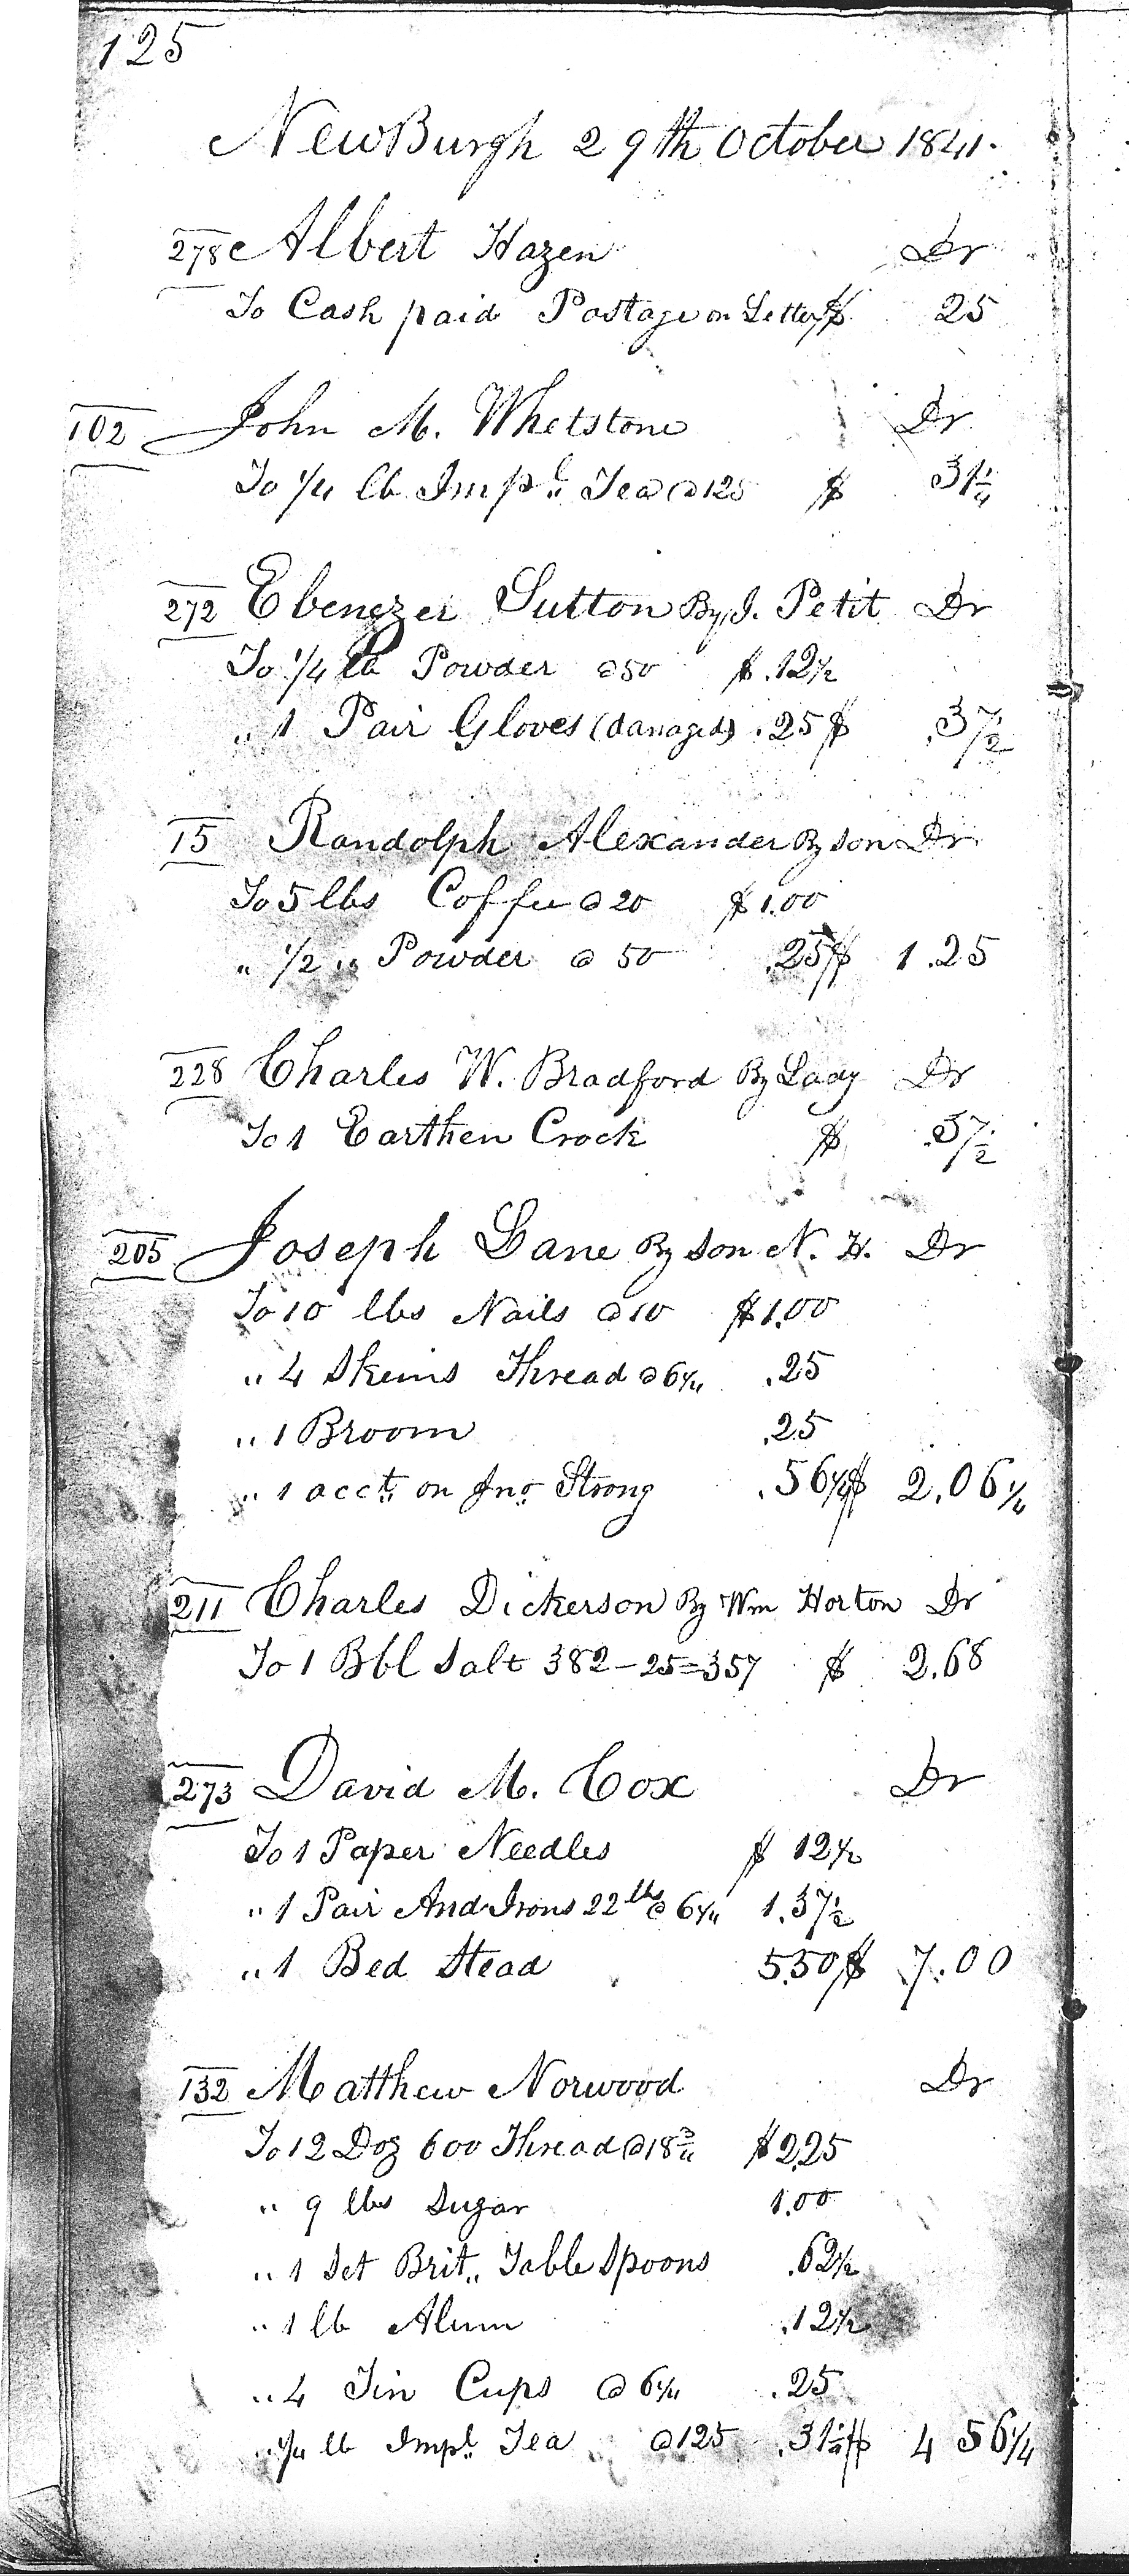 125
NewBurgh 29th October 1841.
278 Albert Hazen Dr
To Cash paid Postage on Letter $ 25
102 John M. Whetstone Dr
To 1/4 lb Impl. Tea @ 125 $ 31 1/4
272 Ebenezer Sutton By J. Petit Dr
To 1/4 lb Powder @ 50 $ .12 1/2
" 1 Pair Gloves (damaged) .25 $ .37 1/2
15 Randolph Alexander By son Dr
To 5 lbs Coffee @ 20 $ 1.00
" 1/2 " Powder @ 50 .25 $ 1.25
228 Charles W. Bradford By Lady Dr
To 1 Earthen Crock $ .37 1/2
205 Joseph Lane By Son N. H. Dr
To 10 lbs Nails @ 10 $ 1.00
" 4 Skeins Thread @ 6 1/4 .25
" 1 Broom .25
" 1 acct. on Jno. Strong .56 1/4 $ 2.06 1/4
211 Charles Dickerson By Wm Horton Dr
To 1 Bbl Salt 382 - 25 = 357 $ 2.68
273 David M. Cox Dr
To 1 Paper Needles $ 12 1/2
" 1 Pair And Irons 22 lbs @ 6 1/4 1.37 1/2
" 1 Bed Stead 5.50 $ 7.00
132 Matthew Norwood Dr
To 12 Doz 600 Thread @ 18 3/4 $ 2.25
" 9 lbs Sugar 1.00
" 1 Set Brit. Table Spoons .62 1/2
" 1 lb Alum .12 1/2
" 4 Tin Cups @ 6 1/4 .25
" 1/4 lb Impl. Tea @ 125 .31 1/4 $ 4 56 1/4